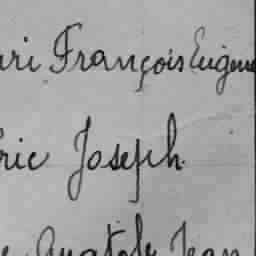 ri François Eugène
ric Joseph
Anatole Jean